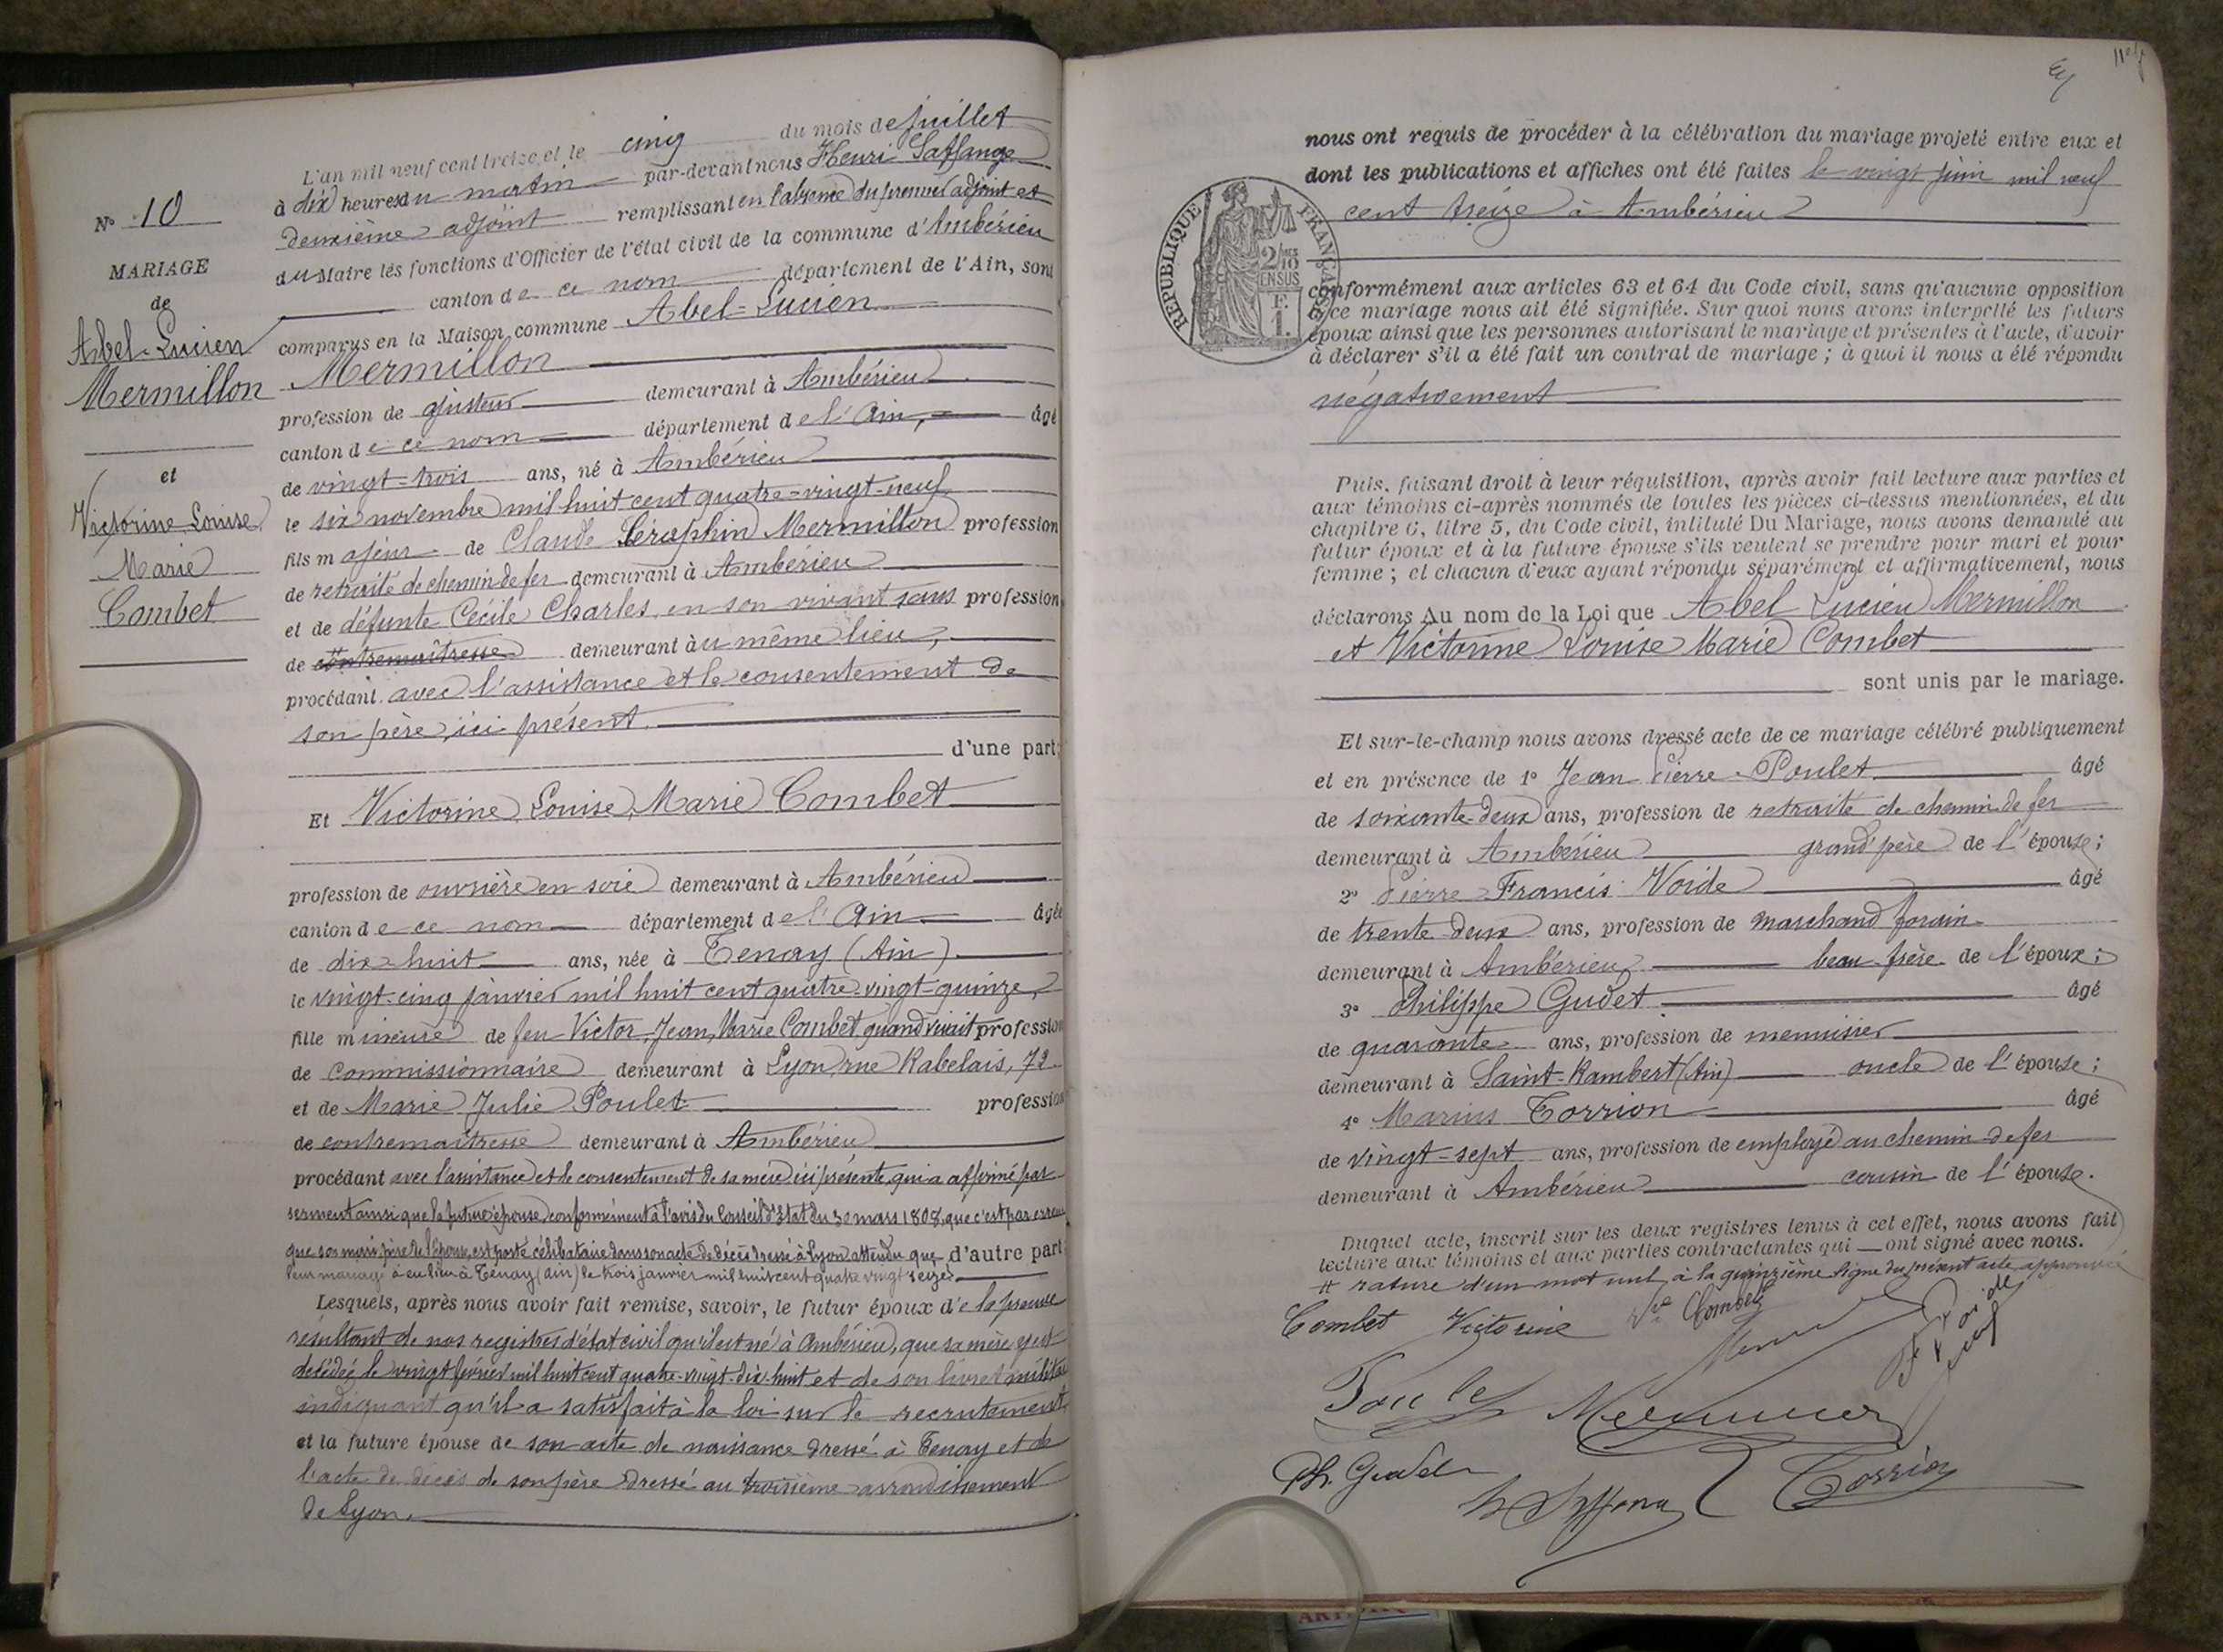 N° 10
MARIAGE
de
Abel-Lucien
Mermillon
et
Victorine Louise
Marie
Combet
L'an mil neuf cent treize, et le cinq du mois de juillet
à dix heures du matin par-devant nous Henri Laffange
deuxième adjoint remplissant en l'absence du premier adjoint et
du Maire les fonctions d'Officier de l'état civil de la commune d'Ambérieu
canton de ce nom département de l'Ain, sont
comparus en la Maison commune Abel-Lucien
Mermillon
profession de ajusteur demeurant à Ambérieu
canton de ce nom département de l'Ain, âgé
de vingt-trois ans, né à Ambérieu
le six novembre mil huit cent quatre-vingt-neuf
fils majeur de Claude Séraphin Mermillon profession
de retraité de chemin de fer demeurant à Ambérieu
et de défunte Cécile Charles en son vivant sans profession
de contremaîtresse demeurant au même lieu,
procédant avec l'assistance et le consentement de
son père, ici présent
d'une part;
Et Victorine Louise Marie Combet
profession de ouvrière en soie demeurant à Ambérieu
canton de ce nom département de l'Ain âgée
de dix-huit ans, née à Tenay (Ain)
le vingt-cinq janvier mil huit cent quatre-vingt-quinze,
fille mineure de feu Victor, Jean, Marie Combet, quand vivait profession
de commissionnaire demeurant à Lyon rue Rabelais, 72
et de Marie Julie Poulet profession
de contremaîtresse demeurant à Ambérieu
procédant avec l'assistance et le consentement de sa mère ici présente, qui a affirmé par
serment ainsi que la future épouse conformément à l'avis du Conseil d'Etat du 30 mars 1808, que c'est par erreur
que son mari, père de l'épouse, est porté célibataire dans son acte de décès dressé à Lyon attendu que d'autre part
leur mariage a eu lieu à Tenay (Ain) le trois janvier mil huit cent quatre vingt seize.
Lesquels, après nous avoir fait remise, savoir, le futur époux de la preuve
résultant de nos registres d'état civil qu'il est né à Ambérieu, que sa mère y est
décédée le vingt février mil huit cent quatre-vingt-dix-huit et de son livret militaire
indiquant qu'il a satisfait à la loi sur le recrutement
et la future épouse de son acte de naissance dressé à Tenay et de
l'acte de décès de son père dressé au troisième arrondissement
de Lyon.
nous ont requis de procéder à la célébration du mariage projeté entre eux et
dont les publications et affiches ont été faites le vingt juin mil neuf
cent treize à Ambérieu
RÉPUBLIQUE FRANÇAISE
2/10
EN SUS
F.
1.
conformément aux articles 63 et 64 du Code civil, sans qu'aucune opposition
à ce mariage nous ait été signifiée. Sur quoi nous avons interpellé les futurs
époux ainsi que les personnes autorisant le mariage et présentes à l'acte, d'avoir
à déclarer s'il a été fait un contrat de mariage; à quoi il nous a été répondu
négativement
Puis, faisant droit à leur réquisition, après avoir fait lecture aux parties et
aux témoins ci-après nommés de toutes les pièces ci-dessus mentionnées, et du
chapitre 6, titre 5, du Code civil, intitulé Du Mariage, nous avons demandé au
futur époux et à la future épouse s'ils veulent se prendre pour mari et pour
femme; et chacun d'eux ayant répondu séparément et affirmativement, nous
déclarons Au nom de la Loi que Abel Lucien Mermillon
et Victorine Louise Marie Combet
sont unis par le mariage.
Et sur-le-champ nous avons dressé acte de ce mariage célébré publiquement
et en présence de 1° Jean Pierre Poulet âgé
de soixante-deux ans, profession de retraité de chemin de fer
demeurant à Ambérieu grand'père de l'épouse;
2° Pierre Francis Voide âgé
de trente-deux ans, profession de marchand forain
demeurant à Ambérieu beau-frère de l'époux;
3° Philippe Gudet âgé
de quarante ans, profession de menuisier
demeurant à Saint-Rambert (Ain) oncle de l'épouse;
4° Marius Torrion âgé
de vingt-sept ans, profession de employé au chemin de fer
demeurant à Ambérieu cousin de l'épouse.
Duquel acte, inscrit sur les deux registres tenus à cet effet, nous avons fait
lecture aux témoins et aux parties contractantes qui ont signé avec nous.
# rature d'un mot nul à la quinzième ligne du présent acte approuvée
Combet Victorine Vve Combet
Poulet
Ph. Gudet
Torrion